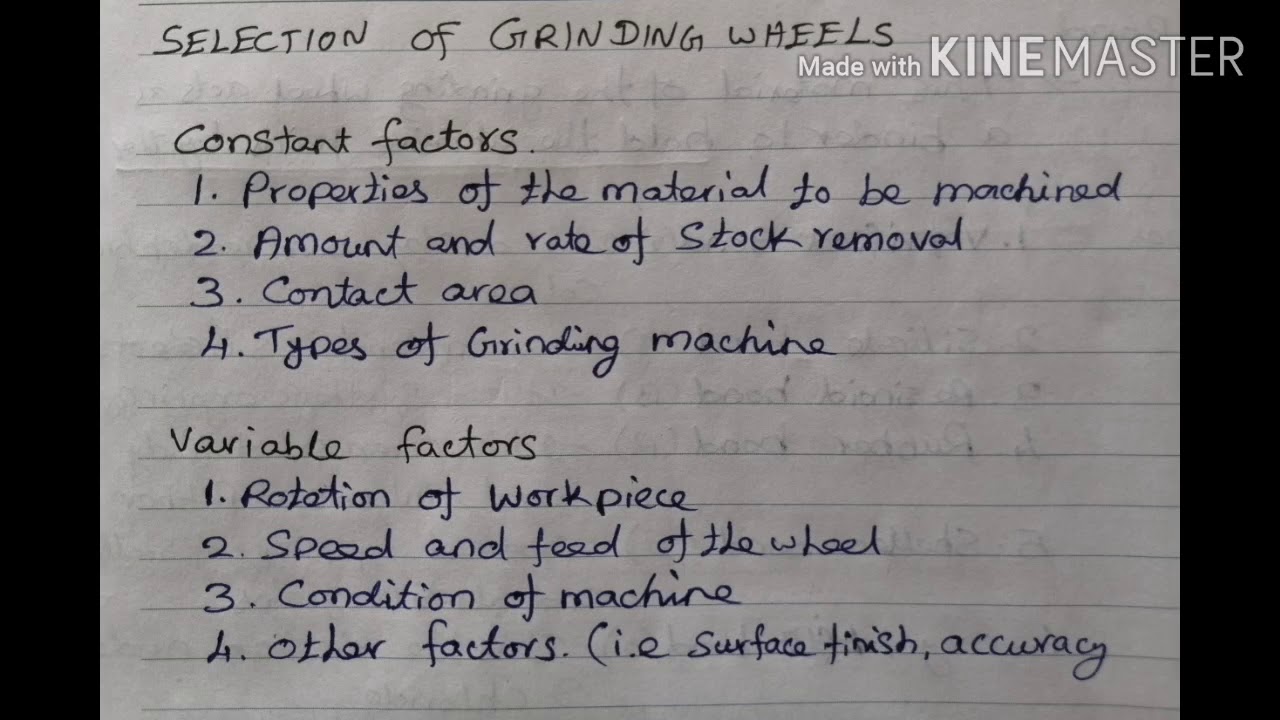 SELECTION OF GRINDING WHEELS
Made with KINEMASTER
Constant factors.
1. Properties of the material to be machined
2. Amount and rate of Stock removal
3. Contact area
4. Types of Grinding machine
Variable factors
1. Rotation of Workpiece
2. Speed and feed of the wheel
3. Condition of machine
4. Other factors. (i.e Surface finish, accuracy